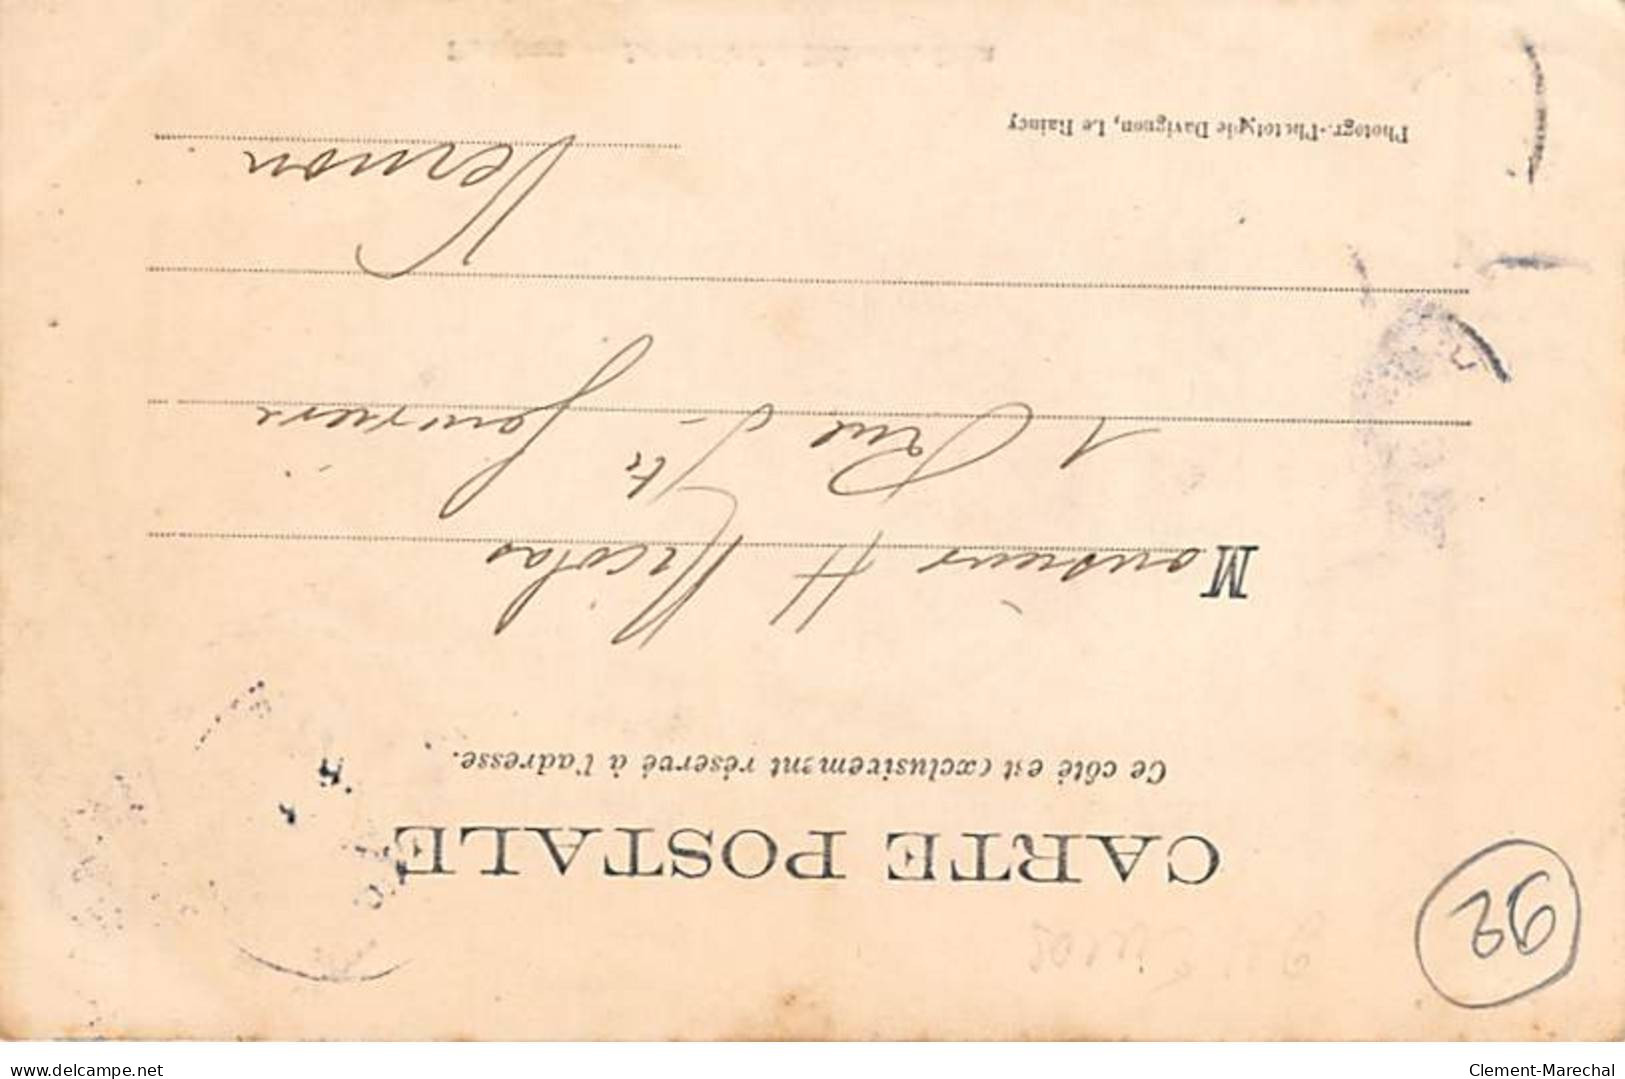 CARTE POSTALE
Ce côté est exclusivement réservé à l'adresse.
Monsieur H Nicolas
1 Rue
Vernon
Photogr.-Phototypie Davignon, Le Raincy
92
delcampe.net
Clement-Marechal